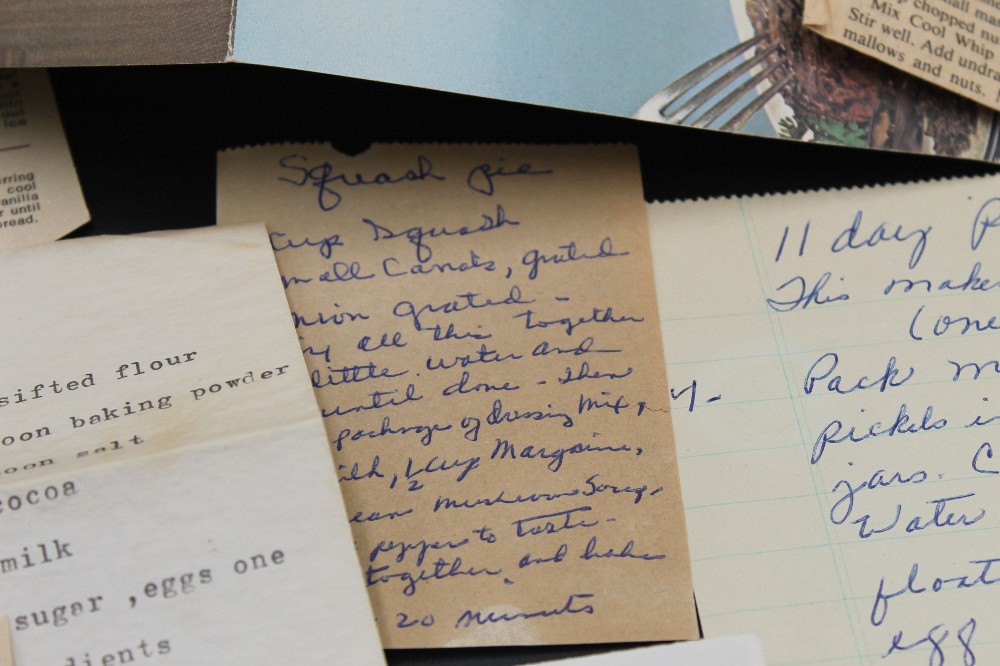 chopped nu
Mix Cool Whip
Stir well. Add undra
mallows and nuts.
out
ice
rring
cool
anilla
r until
read.
Squash pie
Cup Squash
mall Carrots, grated
nion grated -
all this together
little water and
until done - Then
package of dressing mix,
ilk, 1/2 Cup Margarine,
eam mushroom Soup,
pepper to taste -
together, and bake
20 minuts
sifted flour
oon baking powder
oon salt
cocoa
milk
sugar ,eggs one
dients
11 day P
This make
(one
Pack m
pickels i
jars. C
Water
float
egg